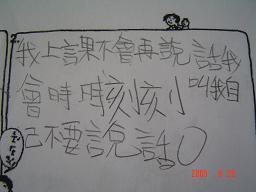 我上課不會再說話我
會時時刻刻叫我自
己不要說話。